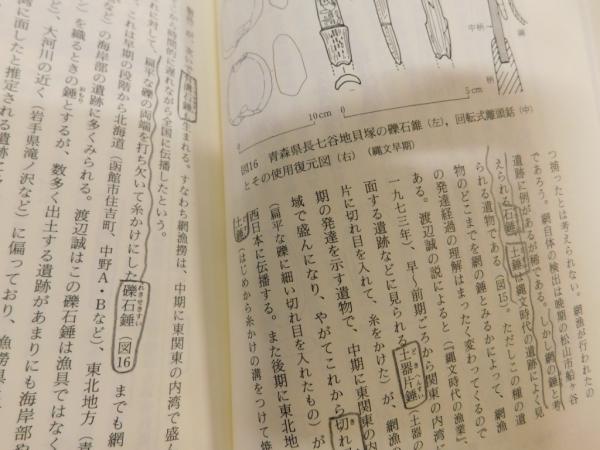 中柄
柄
10cm
0
5cm
図16 青森県長七谷地貝塚の礫石錐(左)、回転式離頭銛(中)
とその使用復元図(右) (縄文早期)
つ捕ったとは考えられない。網漁が行われたの
であろう。網自体の検出は晩期の松山市船ヶ谷
遺跡に例があるが稀である。しかし網の錘と考
えられる石錘、土錘は縄文時代の遺跡によく見
られる遺物である(図15)。ただしこの種の遺
物のどこまでを網の錘とみるかによって、網漁
の発達経過の理解はまったく変わってくるので
ある。渡辺誠の説によると(『縄文時代の漁業』、
一九七三年、早〜前期ごろから関東の内湾に
面する遺跡などに見られる土器片錘(土器の
片に切れ目を入れて、糸をかけた)が、網漁の
期の発達を示す遺物で、中期に東関東の内
域で盛んになり、やがてこれから切れ
(扁平な礫に細い切れ目を入れたもの)が
西日本に伝播する。また後期に東北地
土錘(はじめから糸かけの溝をつけて焼
有溝土錘が生まれる。すなわち網漁撈は、中期に東関東の内湾で盛ん
時間的に遅れながら全国に伝播したという。
に対して、扁平な礫の両端を打ち欠いて糸かけにした礫石錘(図16
れきせきすい
、これは早期の段階から北海道(函館市住吉町、中野A・Bなど)、東北地方(青
など)の海岸部の遺跡に多くみられる。渡辺誠はこの礫石錘は漁具ではなく
)を織るときの錘とするが、数多く出土する遺跡があまりにも海岸部や
ど)、大河川の近く(岩手県滝ノ沢など)に偏っており、漁撈具
湾に面したと推定される遺跡